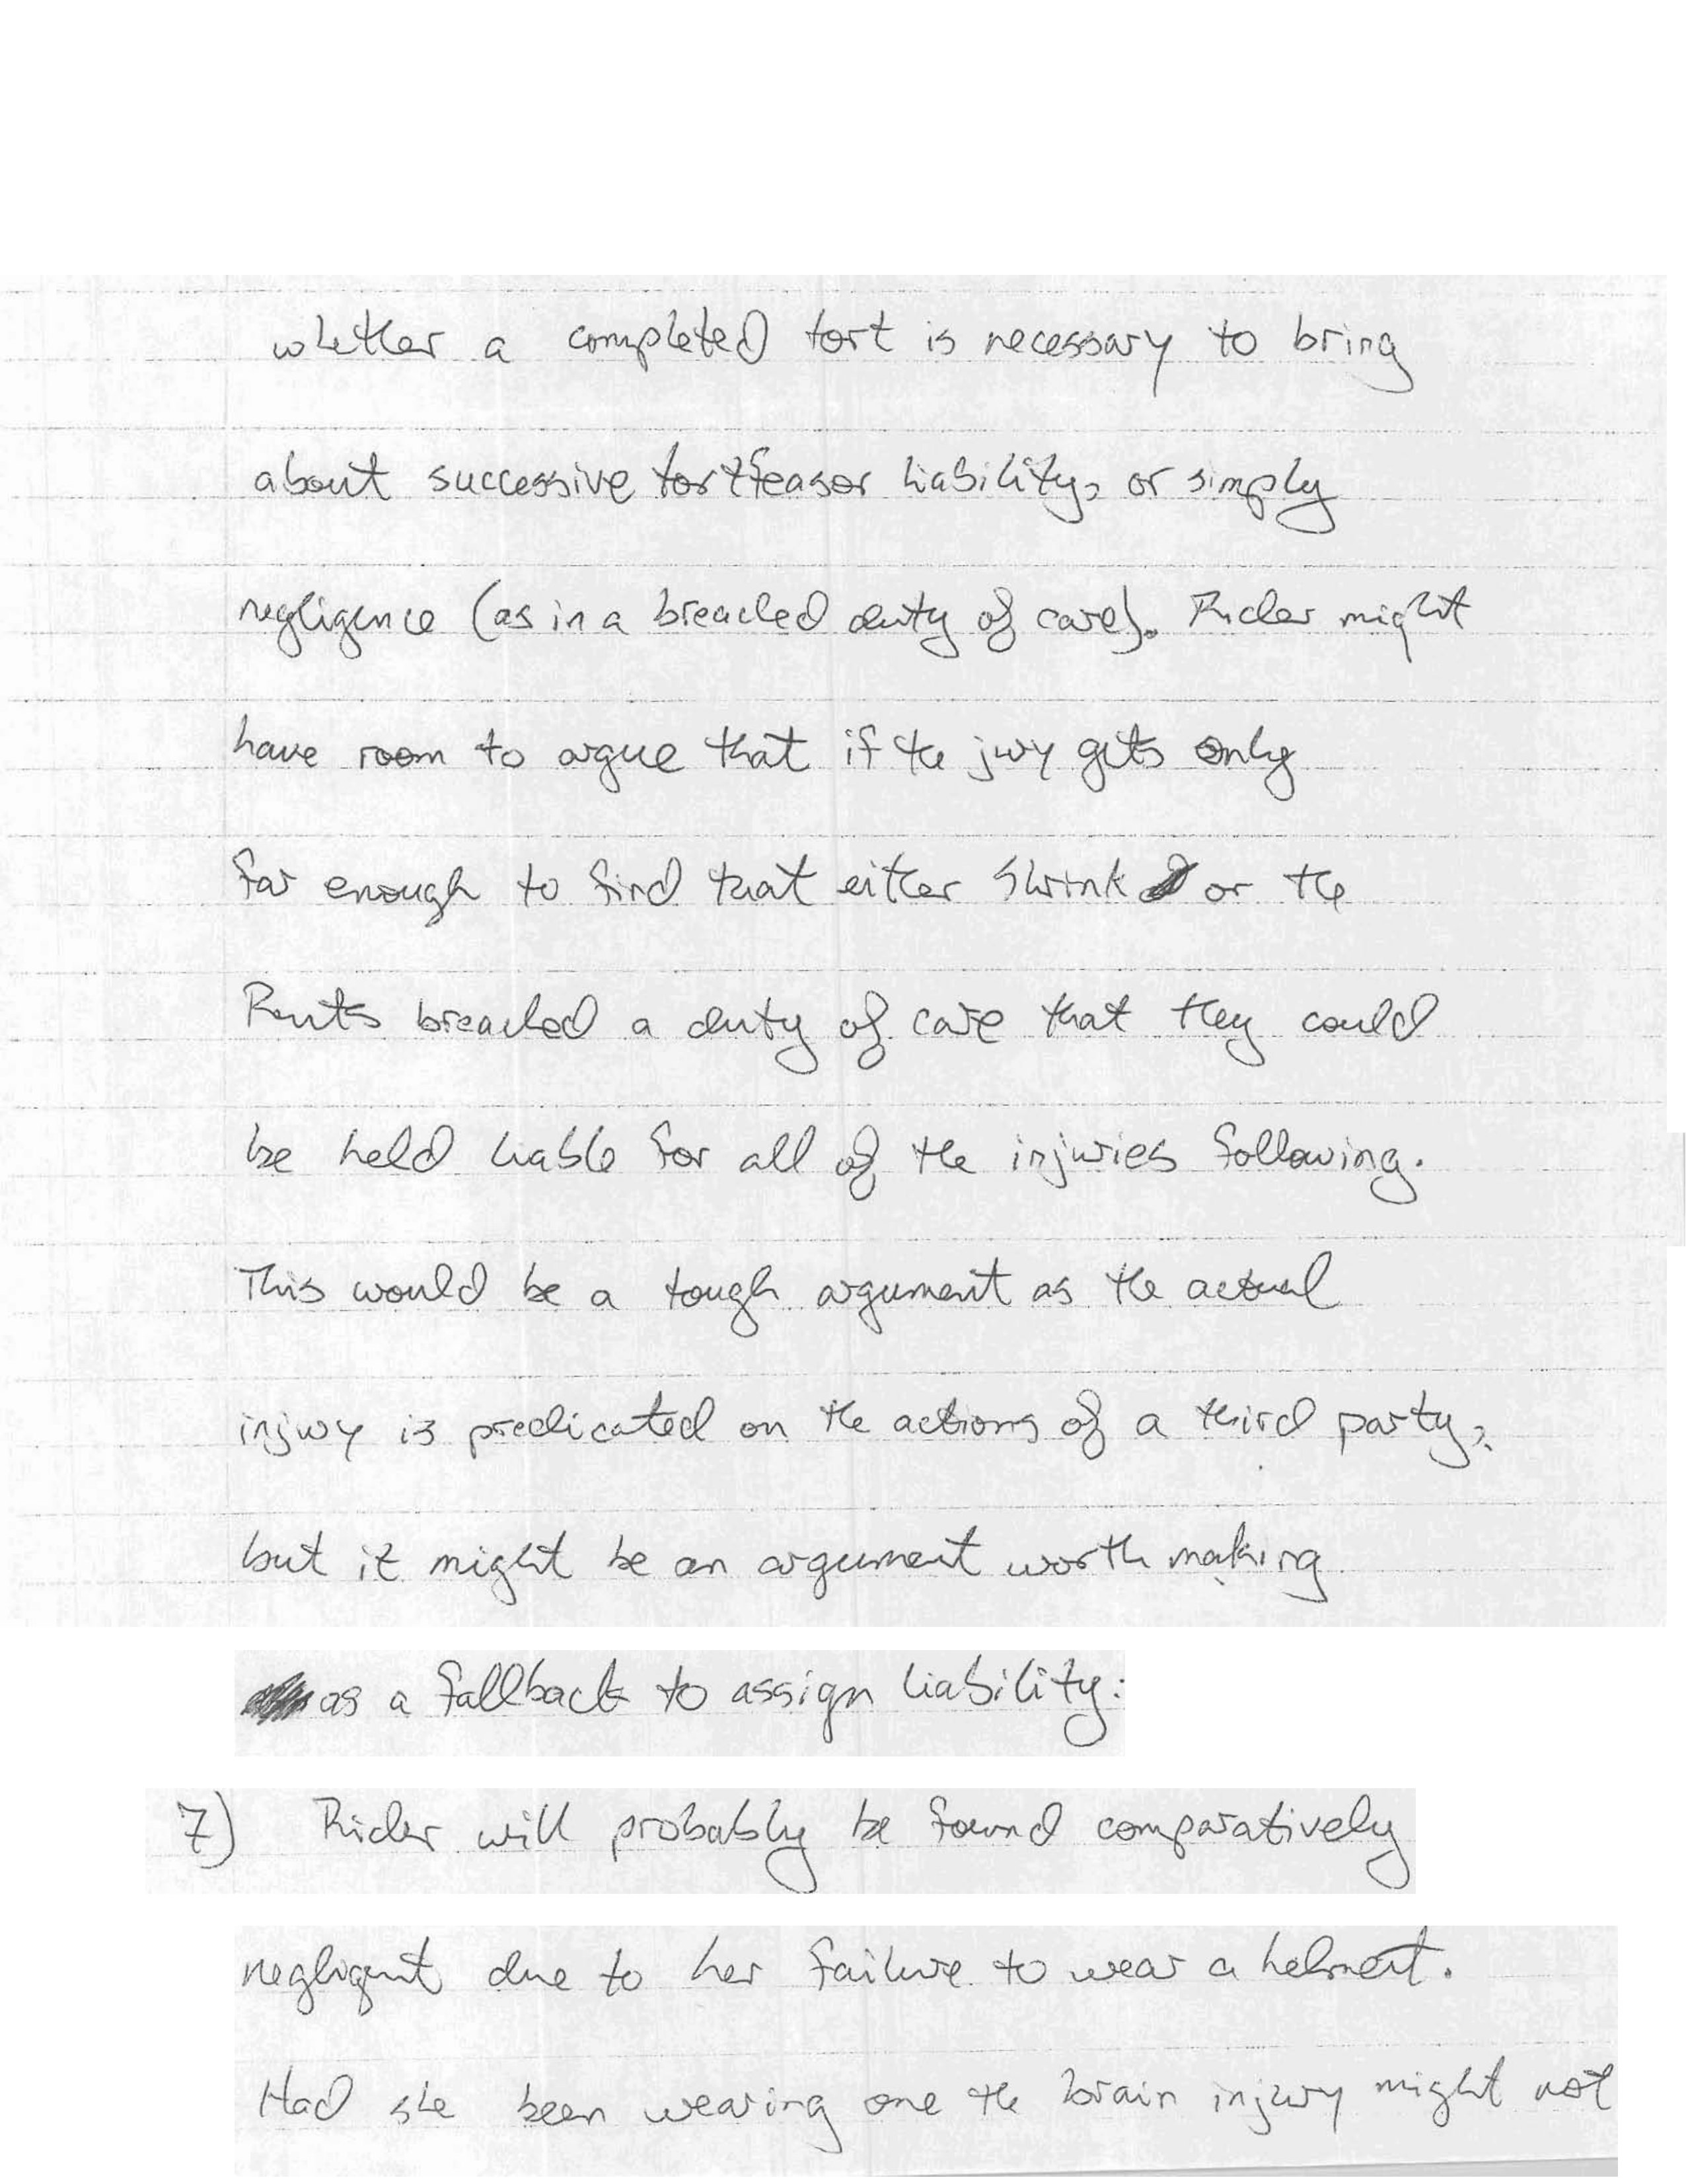 whether a completed tort is necessary to bring
about successive tortfeasor liability, or simply
negligence (as in a breached duty of care). Rider might
have room to argue that if the jury gets only
far enough to find that either Shrink or the
Rents breached a duty of care that they could
be held liable for all of the injuries following.
This would be a tough argument as the actual
injury is predicated on the actions of a third party,
but it might be an argument worth making
as a fallback to assign liability.
7) Rider will probably be found comparatively
negligent due to her failure to wear a helmet.
Had she been wearing one the brain injury might not